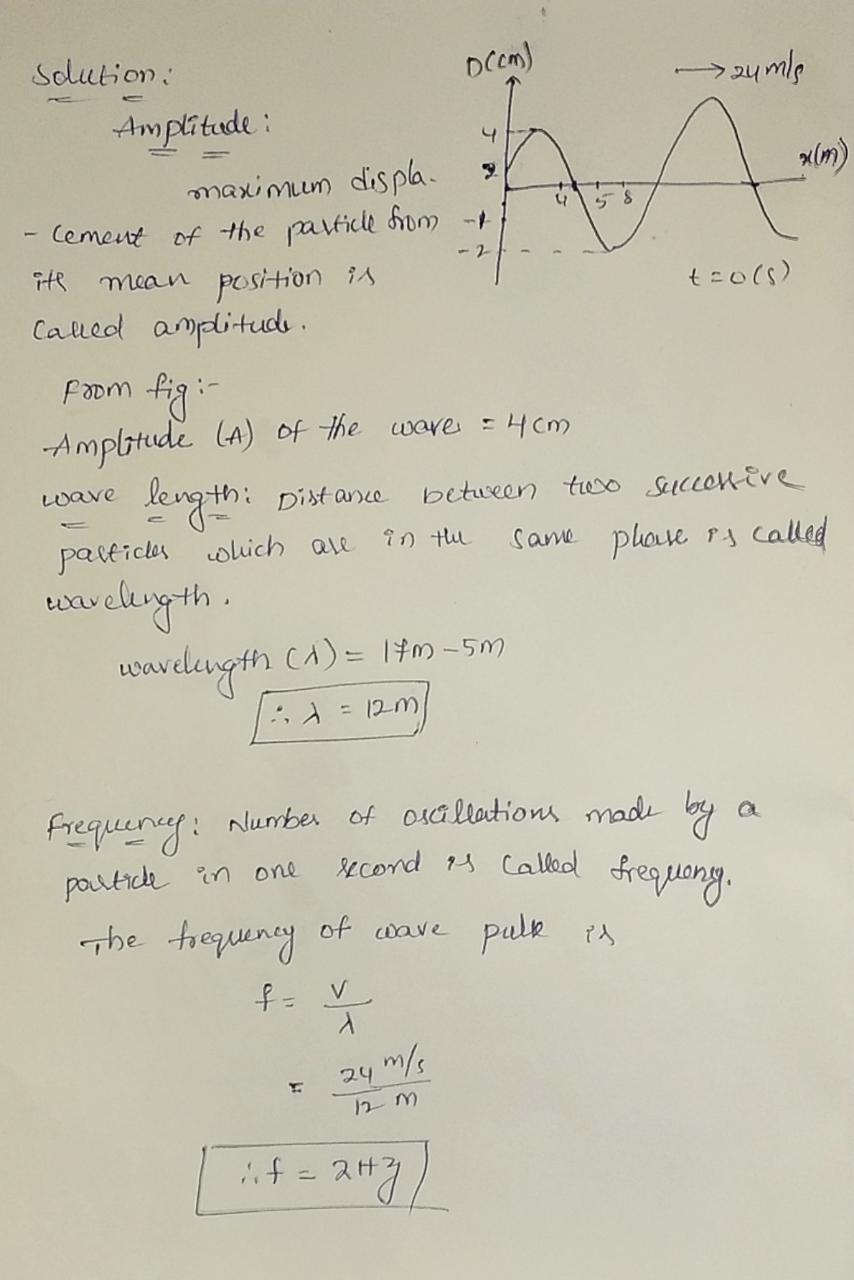 Solution:
Amplitude:
maximum displa-
- cement of the particle from
its mean position is
called amplitude.
D(cm)
→ 24 m/s
4
x(m)
4 5 8
-1
-2
t=0(s)
From fig:-
Amplitude (A) of the wave = 4cm
wave length: Distance between two successive
particles which are in the same phase is called
wavelength.
wavelength (λ) = 17m-5m
∴ λ = 12m
Frequency: Number of oscillations made by a
particle in one second is called frequency.
The frequency of wave pulse is
f = V
λ
= 24 m/s
12 m
∴ f = 2Hz